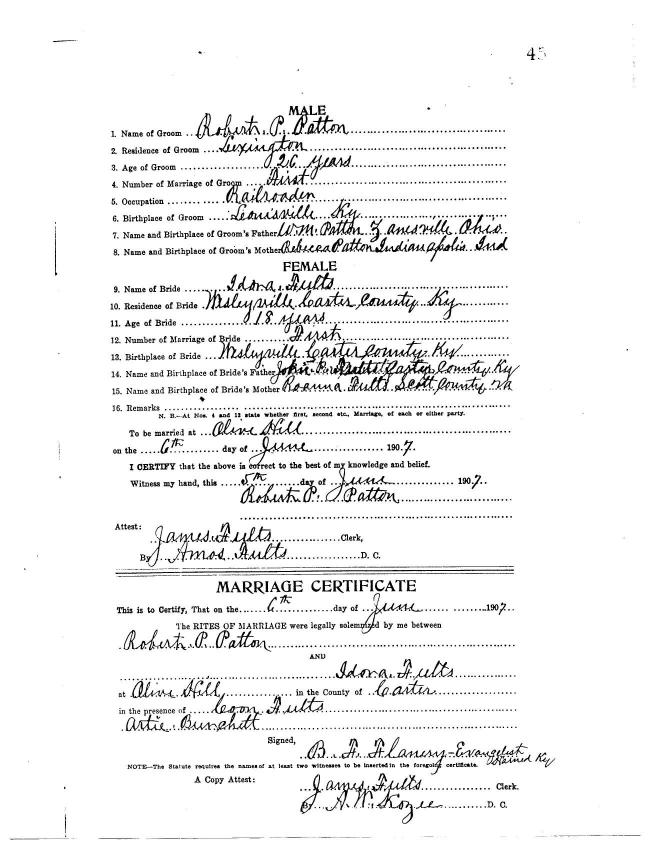 45
MALE
1. Name of Groom Robert P. Patton
2. Residence of Groom Lexington
3. Age of Groom 26 years
4. Number of Marriage of Groom First
5. Occupation Railroader
6. Birthplace of Groom Louisville Ky
7. Name and Birthplace of Groom's Father W. M. Patton Zanesville Ohio
8. Name and Birthplace of Groom's Mother Rebecca Patton Indianapolis Ind
FEMALE
9. Name of Bride Idora Fults
10. Residence of Bride Wesleyville Carter County Ky
11. Age of Bride 18 years
12. Number of Marriage of Bride First
13. Birthplace of Bride Wesleyville Carter County Ky
14. Name and Birthplace of Bride's Father John Fults Carter County Ky
15. Name and Birthplace of Bride's Mother Roanna Fults Scott County Va
16. Remarks
N. B.—At Nos. 4 and 12 state whether first, second etc., Marriage, of each or either party.
To be married at Olive Hill
on the 6th day of June 1907.
I CERTIFY that the above is correct to the best of my knowledge and belief.
Witness my hand, this 5th day of June 1907.
Robert P. Patton
Attest:
James Fults Clerk,
By J. Amos Fults D. C.
MARRIAGE CERTIFICATE
This is to Certify, That on the 6th day of June 1907.
The RITES OF MARRIAGE were legally solemnized by me between
Robert P. Patton
AND
Idora Fults
at Olive Hill, in the County of Carter
in the presence of Leon Fults
Artie Burchett
Signed,
B. F. Flanery-Evangelist
NOTE—The Statute requires the names of at least two witnesses to be inserted in the foregoing certificate.
A Copy Attest:
James Fults Clerk.
By A. W. Kozee D. C.